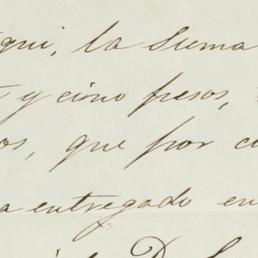 aqui, la suma
y cinco pesos,
os, que por c
a entregado en
D.